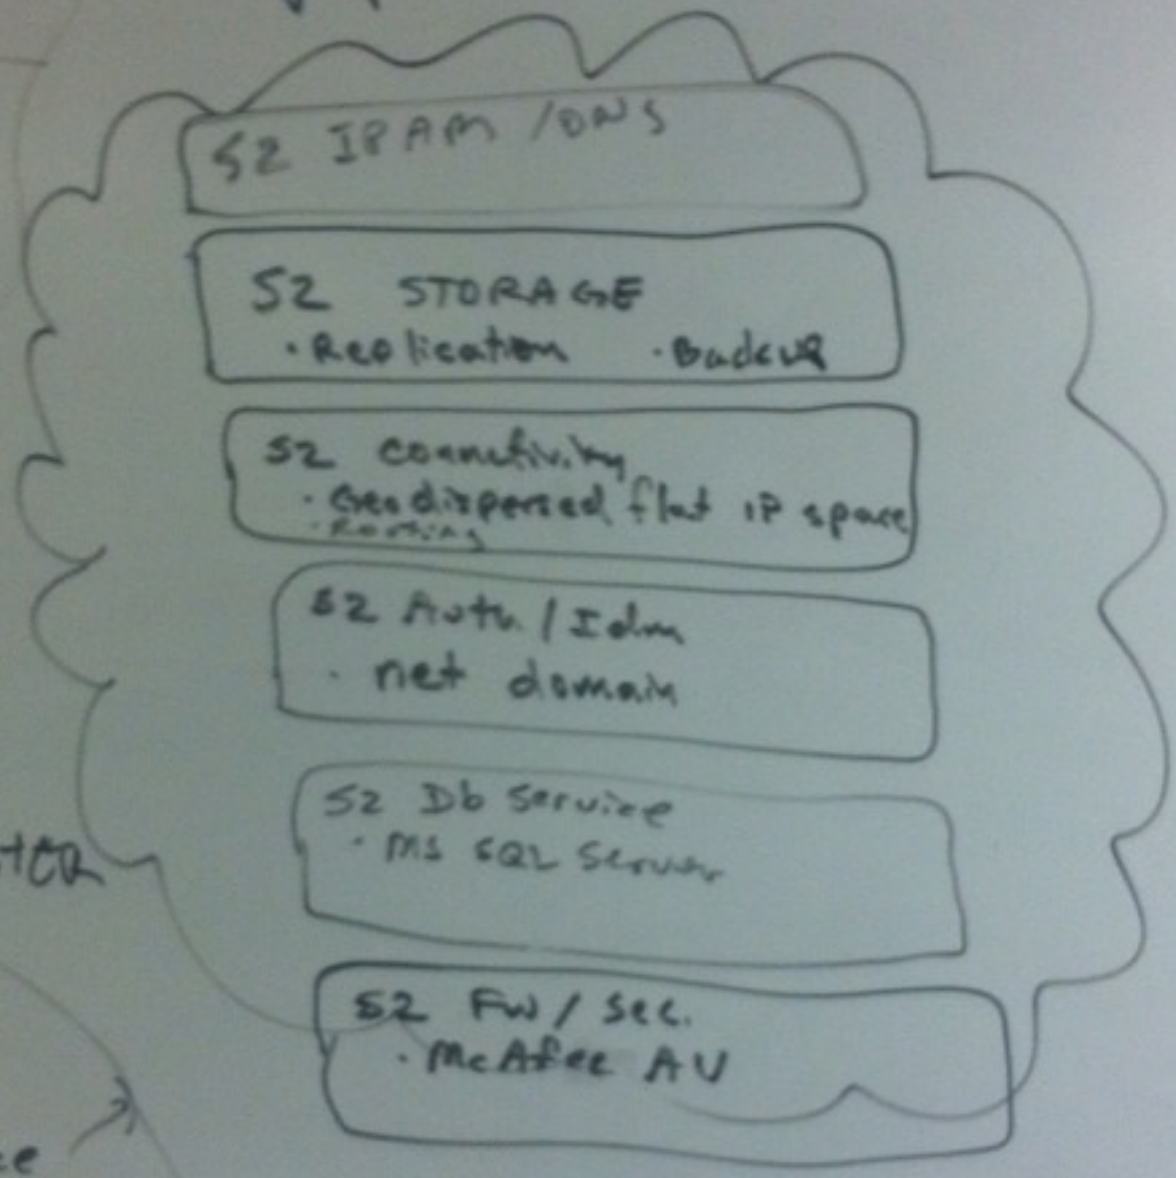 S2 IPAM / DNS
S2 STORAGE
· Replication · Backup
S2 Connectivity
· Geo dispersed flat IP space
· Routing
S2 Auth. / Idm
· net domain
S2 Db Service
· MS SQL Server
S2 FW / Sec.
· McAfee AV